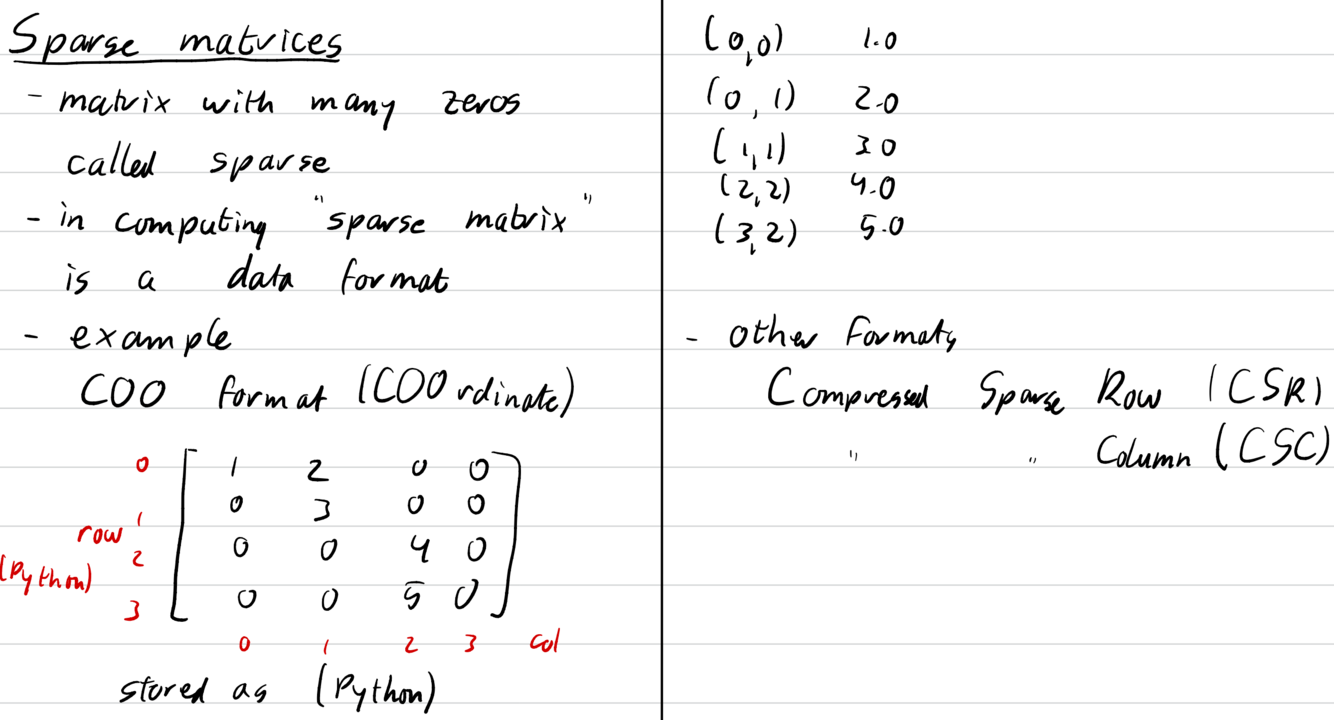 Sparse matrices
- matrix with many zeros
called sparse
- in computing "sparse matrix"
is a data format
- example
COO format (COOrdinate)
0 1 2 0 0
1 0 3 0 0
row
2 0 0 4 0
(Python)
3 0 0 5 0
0 1 2 3 col
stored as (Python)
(0,0) 1.0
(0,1) 2.0
(1,1) 3.0
(2,2) 4.0
(3,2) 5.0
- other formats
Compressed Sparse Row (CSR)
" " Column (CSC)